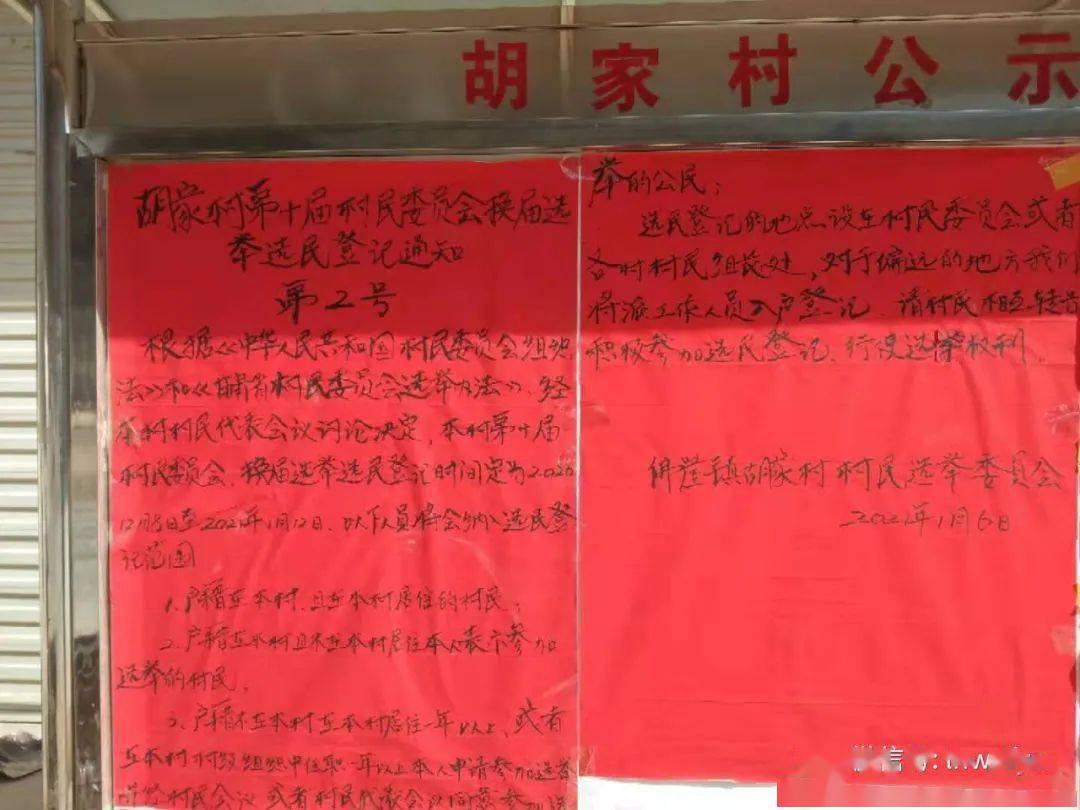 胡家村公示
胡家村第十届村民委员会换届选
举选民登记通知
第2号
根据《中华人民共和国村民委员会组织
法》和《甘肃省村民委员会选举办法》，经
本村村民代表会议讨论决定，本村第十届
村民委员会，换届选举选民登记时间定为2020
12月8日至2021年1月12日、以下人员将会纳入选民登
记范围
1、户籍在本村、且在本村居住的村民；
2、户籍在本村且不在本村居住本人表示参加
选举的村民。
3、户籍不在本村在本村居住一年以上、或者
在本村村级组织中任职一年以上本人申请参加选举
村民会议或者村民代表会议同意参加选
举的公民；
选民登记的地点设在村民委员会或者
各村村民组长处，对于偏远的地方我们
将派工作人员入户登记、请村民相互转告
积极参加选民登记、行使选举权利。
胡家村村民选举委员会
2021年1月6日
微信号: